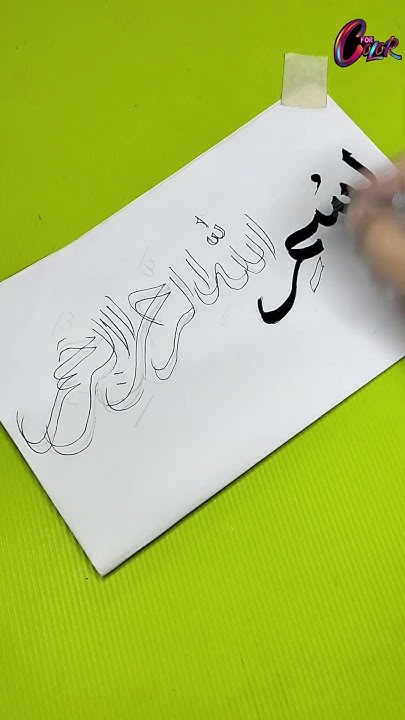 بسم الله الرحمن الرحيم
FOR COLOR